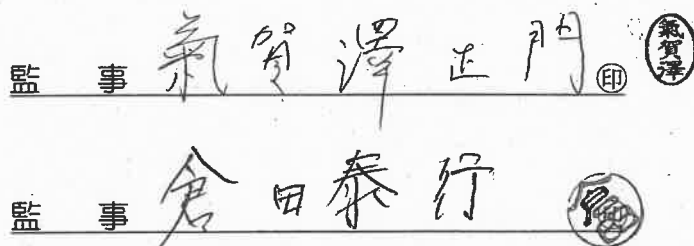 監事 氣賀澤正門 ㊞ 氣賀澤
監事 倉田泰行